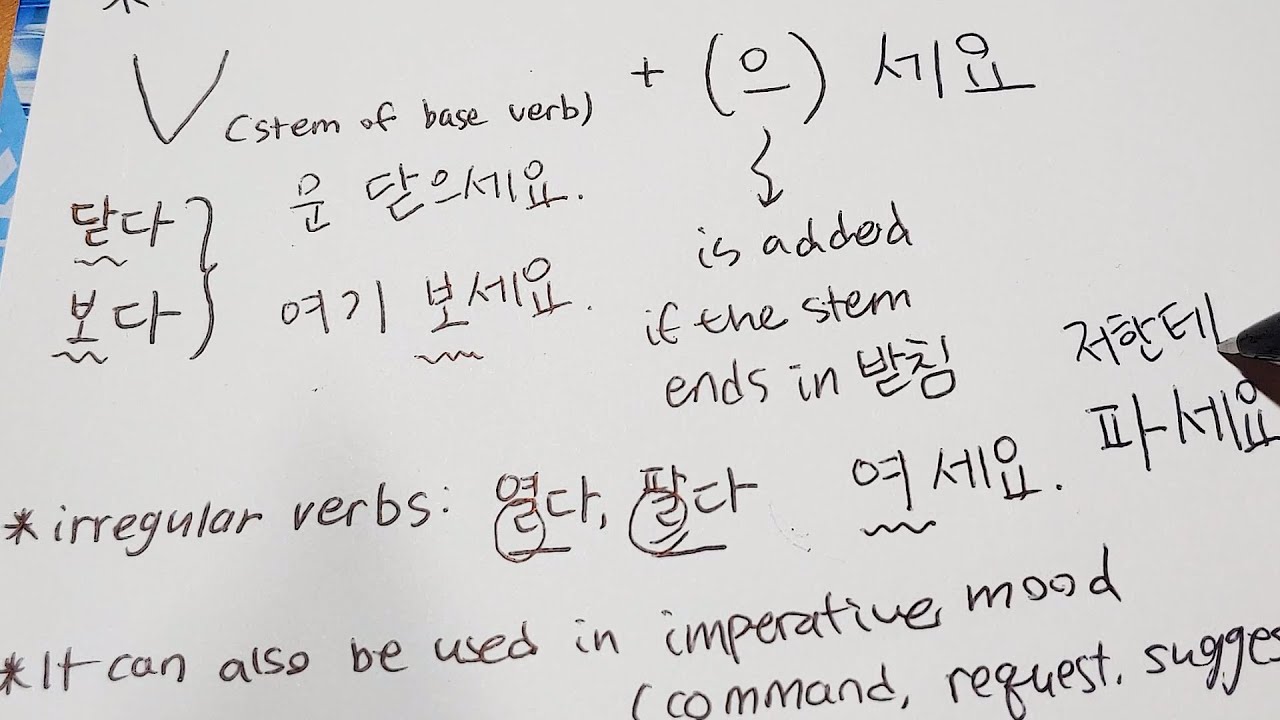 *
V (stem of base verb) + (으) 세요
닫다 } 문 닫으세요.
보다 } 여기 보세요.
is added
if the stem
ends in 받침
저한테
파세요
*irregular verbs: 열다, 팔다 여세요.
*It can also be used in imperative mood
(command, request, sugges